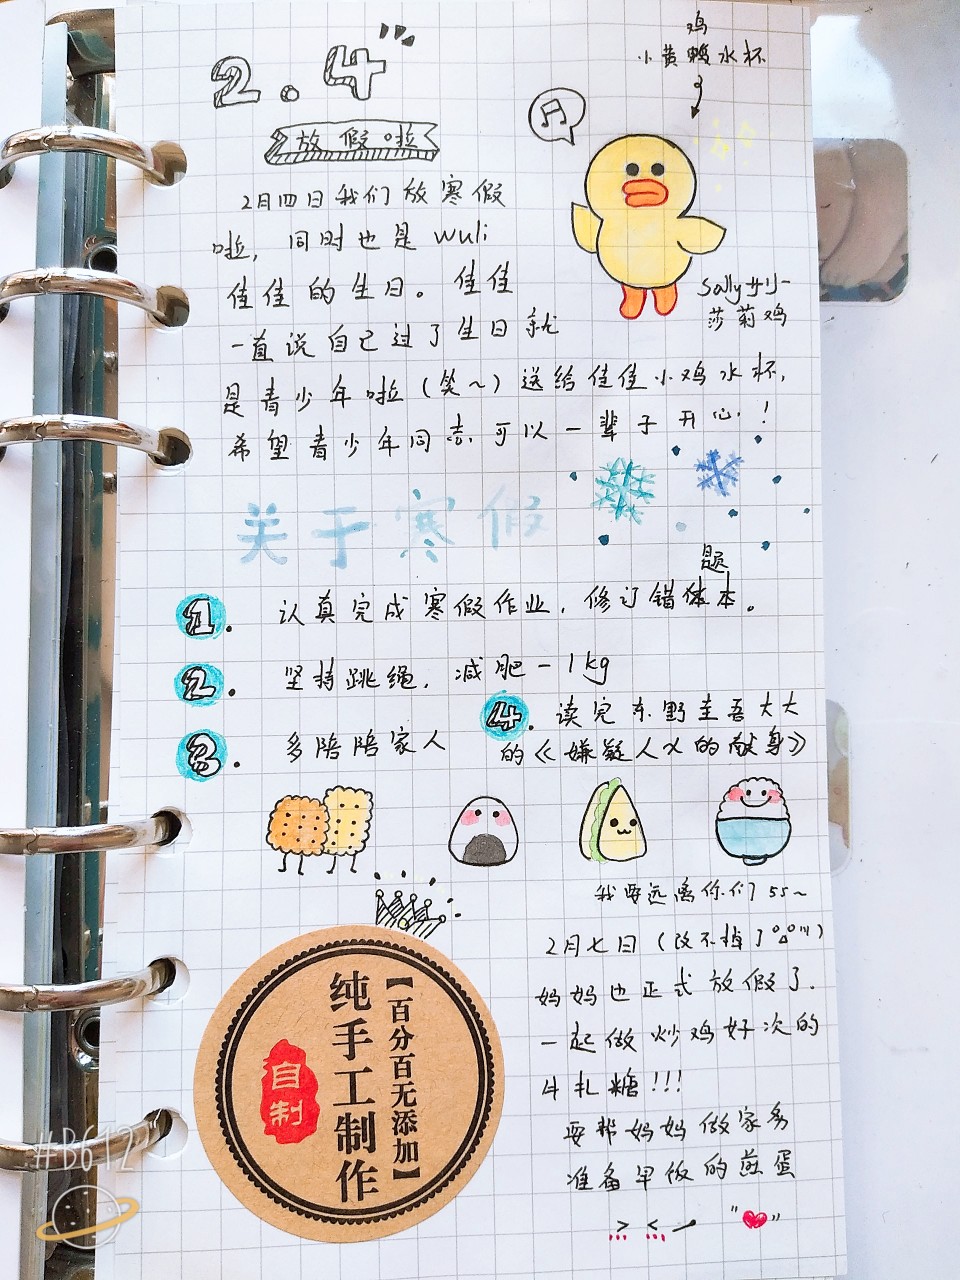 2.4
放假啦
鸡
小黄鸭水杯
2月四日我们放寒假
啦，同时也是wuli
佳佳的生日。佳佳
一直说自己过了生日就
是青少年啦（笑~）送给佳佳小鸡水杯，
希望青少年同志可以一辈子开心！
Sally サリー
莎莉鸡
关于寒假
1. 认真完成寒假作业，修订错体本。
题
2. 坚持跳绳，减肥-1kg
3. 多陪陪家人
4. 读完东野圭吾大大
的《嫌疑人X的献身》
我要远离你们 55~
2月七日（改不掉了
妈妈也正式放假了.
一起做炒鸡好次的
牛扎糖!!!
要帮妈妈做家务
准备早饭的煎蛋
【百分百无添加】
纯手工制作
自制
#B612